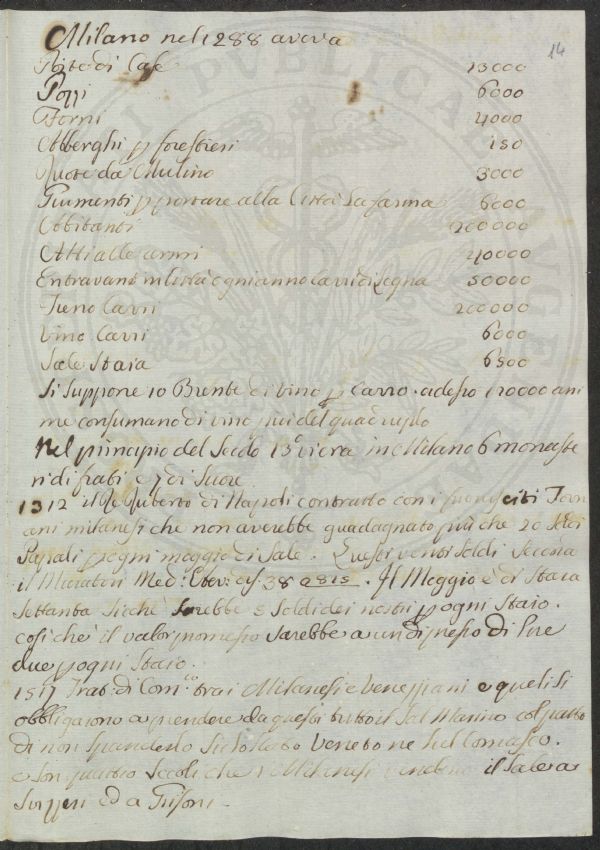 Milano nel 1288 aveva
14
Porte di Case 13000
Pozzi 6000
Forni 4000
Alberghi p forestieri 150
Ruote da Mulino 3000
Giumenti p portare alla Città la farina 6000
Abbitanti 200000
Atti alle armi 40000
Entravano in Città ogni anno Carri di Legna 50000
Fieno Carri 200000
Vino Carri 6000
Sale Staia 6500
Si suppone 10 Brente di vino p Carro. adesso 120000 ani
me consumano di vino piu del quadruplo
Nel principio del Secolo 13º vi era in Milano 6 monaste
ri di frati e 7 di Suore
1312 il Re Ruberto di Napoli contrattò con i fuorusciti
ani milanesi che non averebbe guadagnato più che 20 Soldi
Papali p ogni moggio di Sale. Questi venti Soldi Secondo
il Muratori Med: Ever: 28 . Il Moggio è di Staia
Settanta Sicche Sarebbe 5 Soldi dei nostri p ogni Staio.
cosi che il valor promesso Sarebbe a un di presso di Lire
due p ogni Staio.
1517 Trat: di Com. tra i Milanesi e Veneziani e queli Si
obbligarono a prendere da questi tutto il Sal Marino col patto
di non Spanderlo Sullo Stato Veneto ne Sul Comasco.
e Son quattro Secoli che i Milanesi vendono il Sale a
Svizzeri ed a Grisoni.